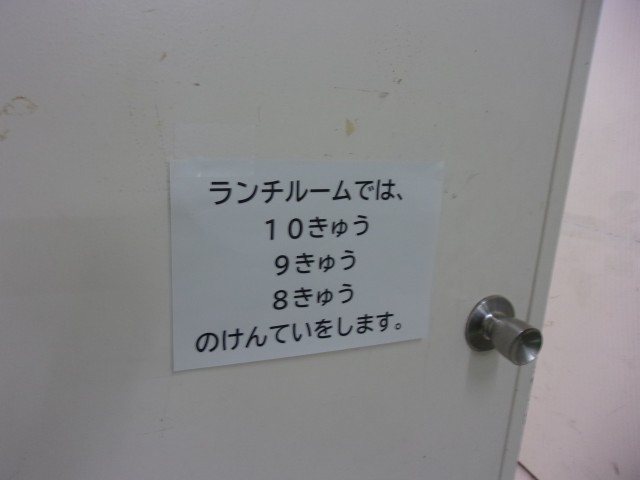 ランチルームでは、
１０きゅう
９きゅう
８きゅう
のけんていをします。